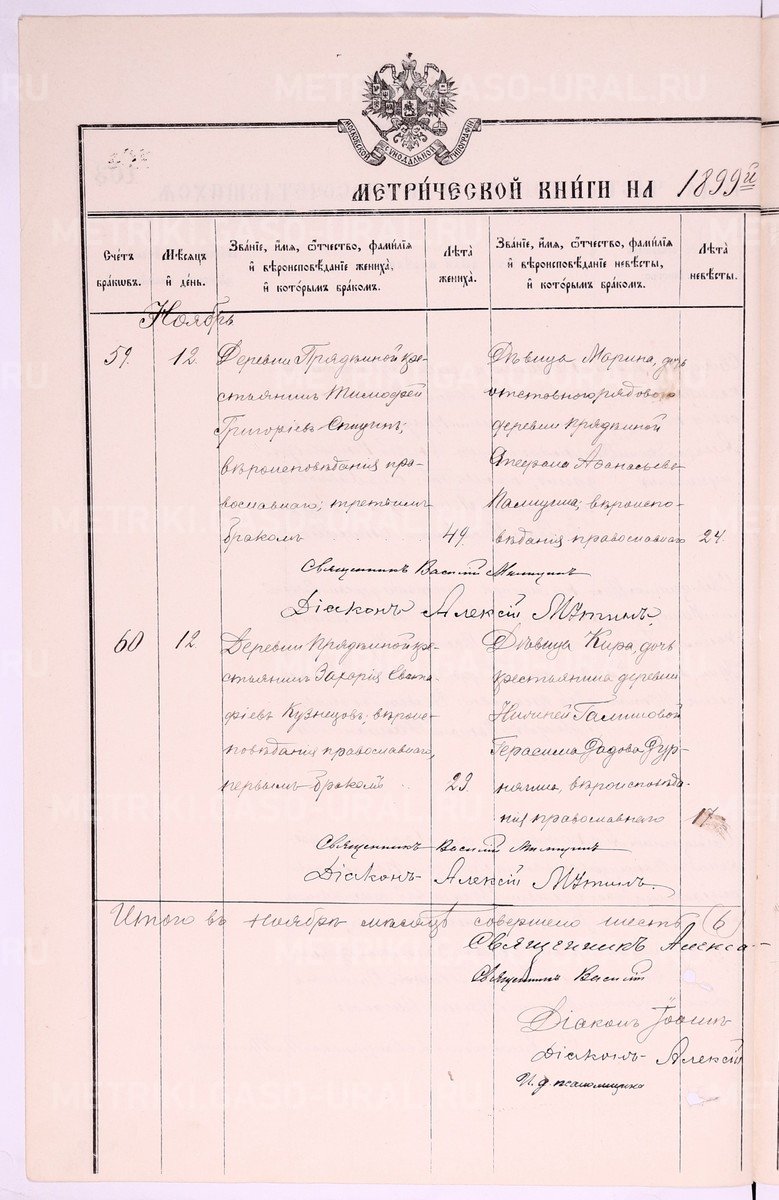 МОСКОВСКОЙ СѴНОДАЛЬНОЙ ТИПОГРАФІИ
МЕТРИ́ЧЕСКОЙ КНИ́ГИ НА 1899й
Сче́тъ бра́кѡвъ.
Мѣ́сѧцъ и҆ де́нь.
Зва́нїе, и҆́мѧ, ѻ҆́тчество, фамилїѧ и҆ вѣроисповѣ́данїе жениха̀, и҆ кото́рымъ бра́комъ.
Лѣ́та жениха.
Зва́нїе, и҆́мѧ, ѻ҆́тчество, фамилїѧ и҆ вѣроисповѣ́данїе невѣ́сты, и҆ кото́рымъ бра́комъ.
Лѣ́та невѣ́сты.
Ноябрь
59.
12.
Деревни Прядкиной кре-
стьянинъ Тимофей
Григоріевъ Спицин;
вѣроисповѣданія пра-
вославнаго; третьимъ
бракомъ
49.
Дѣвица Марина, дочь
отставного рядового
деревни Прядкиной
Стефана Аѳанасьева
вѣроиспо-
вѣданія православнаго
24.
Священникъ Василій
Діаконъ Алексій
60
12.
Деревни Прядкиной кре-
стьянинъ Захарія Евста-
фіевъ Кузнецовъ, вѣроис-
повѣданія православнаго,
первымъ бракомъ
23.
Дѣвица Кира, дочь
крестьянина деревни
Нижней
Герасима Дур-
нягина, вѣроисповѣда-
нія православнаго
17
Священникъ Василій
Діаконъ Алексій
Итого въ ноябрѣ мѣсяцѣ совершено шесть (6)
Священникъ Алекса-
Священникъ Василій
Діаконъ Іоаннъ
Діаконъ Алексій
И. д. псаломщика